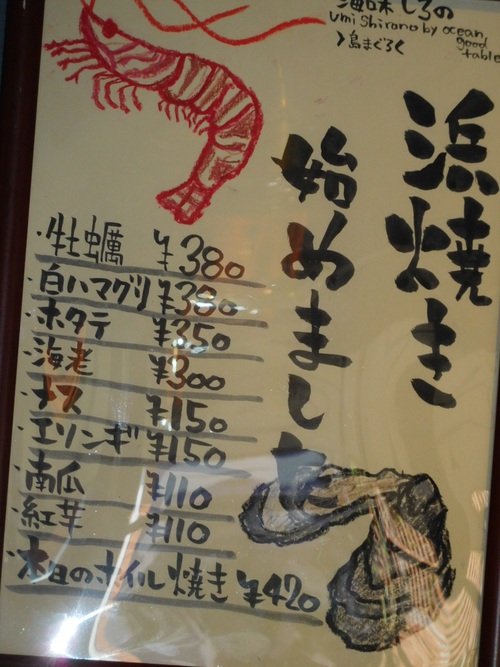 海味しろの
umi Shirono by ocean
good
table
>島まぐろ<
浜焼き
始めました
・牡蠣 ¥380
・白ハマグリ ¥380
・ホタテ ¥350
・海老 ¥300
・ナス ¥150
・エリンギ ¥150
・南瓜 ¥110
・紅芋 ¥110
・本日のホイル焼き ¥420